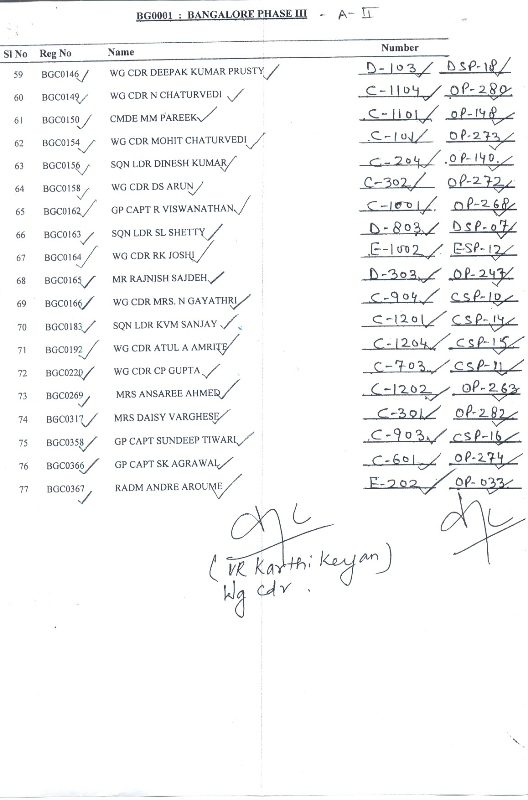 BG0001 : BANGALORE PHASE III - A-II
Sl No Reg No Name Number
59 BGC0146 WG CDR DEEPAK KUMAR PRUSTY D-103 DSP-18
60 BGC0149 WG CDR N CHATURVEDI C-1104 OP-280
61 BGC0150 CMDE MM PAREEK C-1101 OP-148
62 BGC0154 WG CDR MOHIT CHATURVEDI C-101 OP-273
63 BGC0156 SQN LDR DINESH KUMAR C-204 OP-140
64 BGC0158 WG CDR DS ARUN C-302 OP-272
65 BGC0162 GP CAPT R VISWANATHAN C-1001 OP-268
66 BGC0163 SQN LDR SL SHETTY D-803 DSP-07
67 BGC0164 WG CDR RK JOSHI E-1002 ESP-12
68 BGC0165 MR RAJNISH SAJDEH D-303 OP-247
69 BGC0166 WG CDR MRS. N GAYATHRI C-904 CSP-10
70 BGC0183 SQN LDR KVM SANJAY C-1201 CSP-14
71 BGC0192 WG CDR ATUL A AMRITE C-1204 CSP-15
72 BGC0220 WG CDR CP GUPTA C-703 CSP-11
73 BGC0269 MRS ANSAREE AHMED C-1202 OP-263
74 BGC0317 MRS DAISY VARGHESE C-301 OP-282
75 BGC0358 GP CAPT SUNDEEP TIWARI C-903 CSP-16
76 BGC0366 GP CAPT SK AGRAWAL C-601 OP-274
77 BGC0367 RADM ANDRE AROUME E-202 OP-033
(VR Karthikeyan)
Wg cdr .